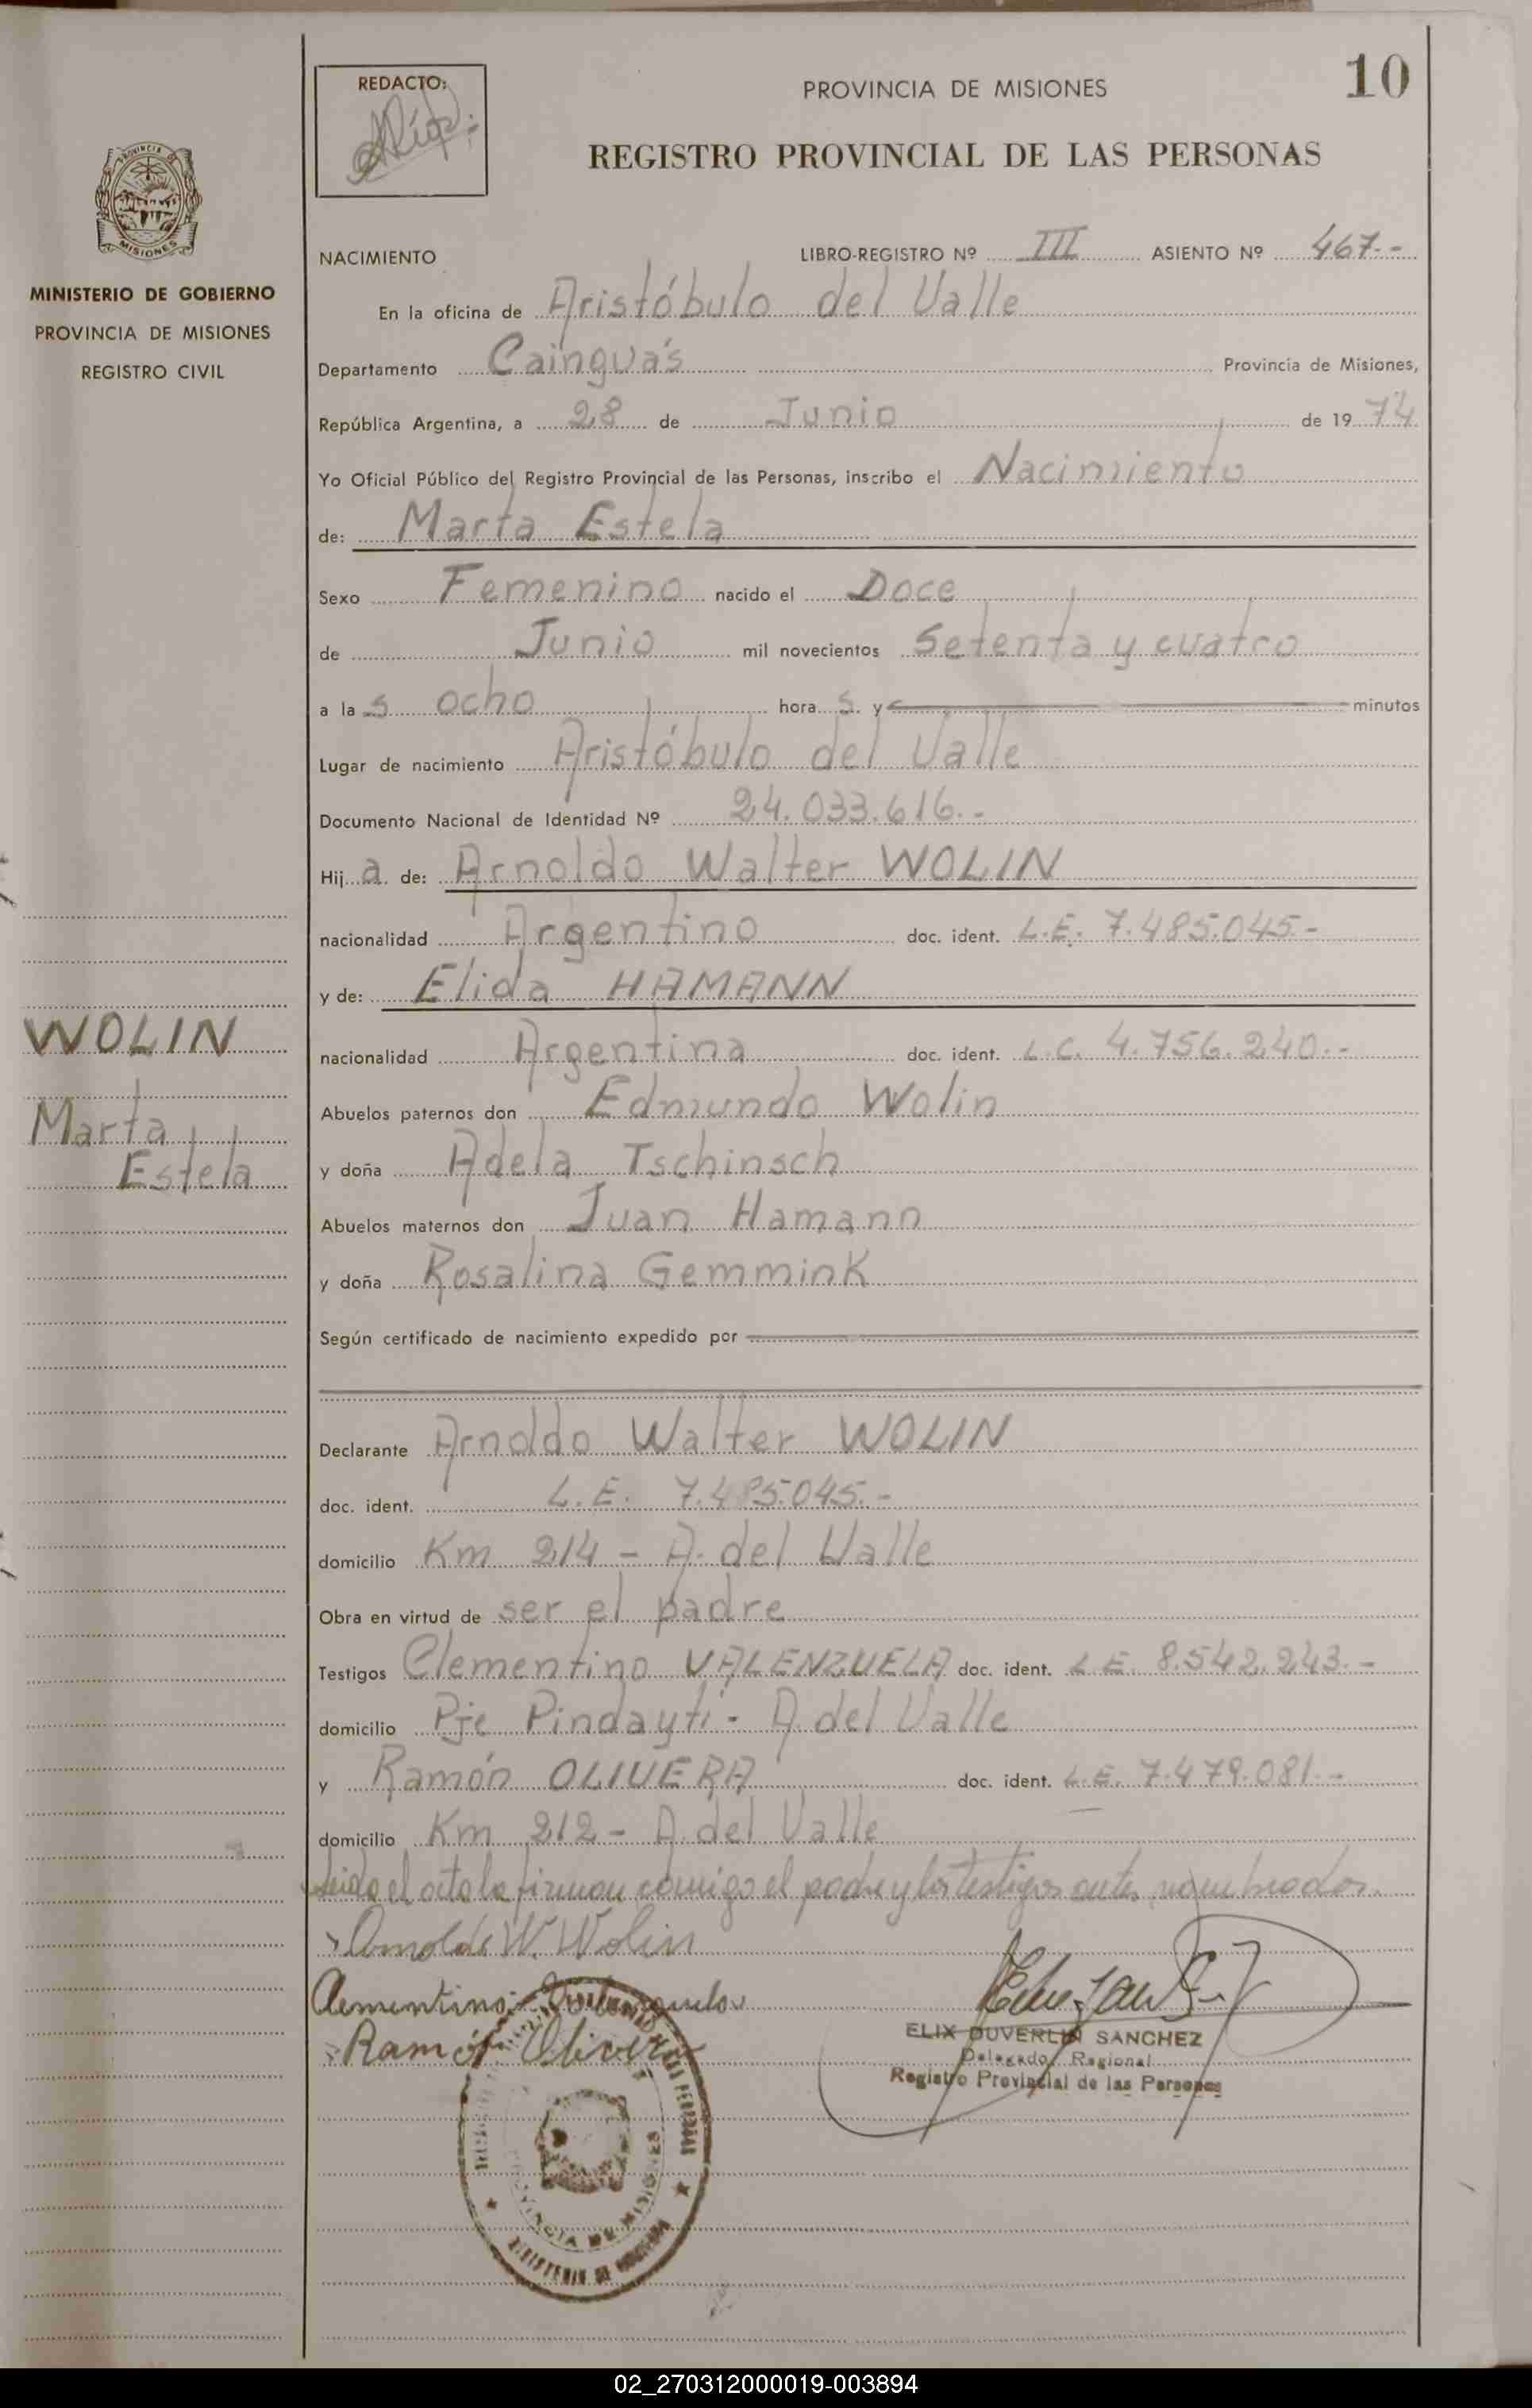 10
REDACTO:
PROVINCIA DE MISIONES
REGISTRO PROVINCIAL DE LAS PERSONAS
MISIONES
MINISTERIO DE GOBIERNO
PROVINCIA DE MISIONES
REGISTRO CIVIL
NACIMIENTO LIBRO-REGISTRO Nº III ASIENTO Nº 467.-
En la oficina de Aristóbulo del Valle
Departamento Cainguás Provincia de Misiones,
República Argentina, a 28 de Junio de 1974
Yo Oficial Público del Registro Provincial de las Personas, inscribo el Nacimiento
de: Marta Estela
Sexo Femenino nacido el Doce
de Junio mil novecientos Setenta y cuatro
a las ocho horas y minutos
Lugar de nacimiento Aristóbulo del Valle
Documento Nacional de Identidad Nº 24.033.616.-
Hija de: Arnoldo Walter WOLIN
nacionalidad Argentino doc. ident. L.E. 7.485.045.-
y de: Elida HAMANN
nacionalidad Argentina doc. ident. L.C. 4.756.240.-
Abuelos paternos don Edmundo Wolin
y doña Adela Tschinsch
Abuelos maternos don Juan Hamann
y doña Rosalina Gemmink
Según certificado de nacimiento expedido por
WOLIN
Marta
Estela
Declarante Arnoldo Walter WOLIN
doc. ident. L.E. 7.485.045.-
domicilio Km 214 - A. del Valle
Obra en virtud de ser el padre
Testigos Clementino VALENZUELA doc. ident. L.E. 8.542.243.-
domicilio Pje Pindaytí - A. del Valle
y Ramón OLIVERA doc. ident. L.E. 7.479.081.-
domicilio Km 212 - A. del Valle
Leido el acta la firman conmigo el padre y los testigos antes nombrados.
Arnoldo W. Wolin
Clementino
Ramón Olivera
ELIX DUVERLIN SANCHEZ
Delegado Regional
Registro Provincial de las Personas
PROVINCIA DE MISIONES
MINISTERIO DE GOBIERNO
02_270312000019-003894